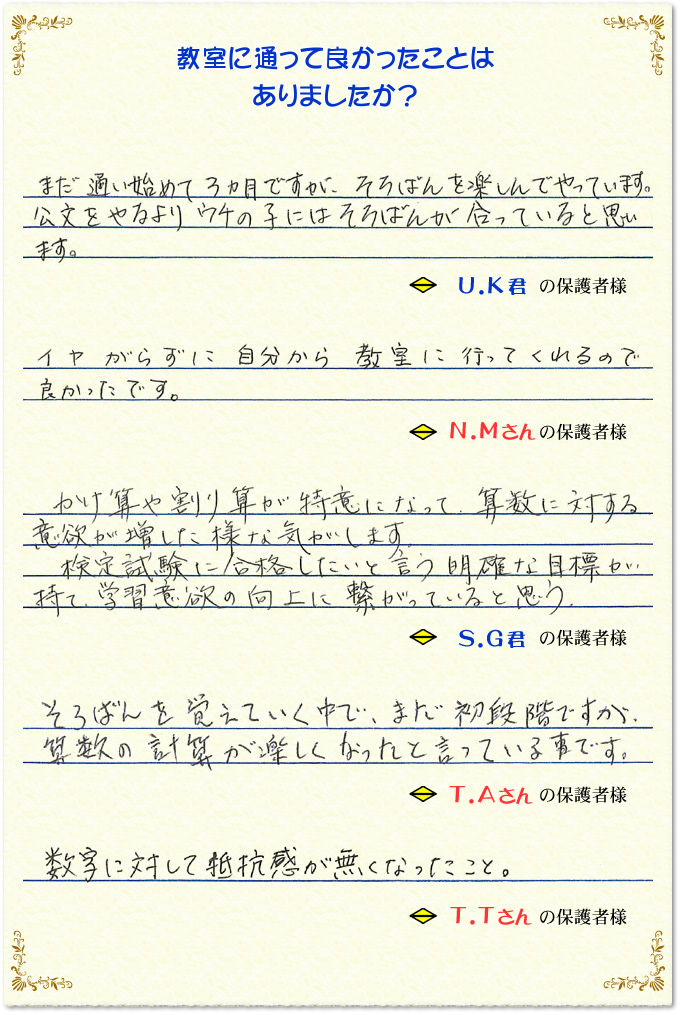 教室に通って良かったことは
ありましたか？
まだ通い始めて3ヵ月ですが、そろばんを楽しんでやっています。
公文をやるよりウチの子にはそろばんが合っていると思い
ます。
U.K君 の保護者様
イヤがらずに自分から教室に行ってくれるので
良かったです。
N.Mさんの保護者様
かけ算や割り算が特意になって、算数に対する
意欲が増した様な気がします。
検定試験に合格したいと言う明確な目標が
持て、学習意欲の向上に繋がっていると思う。
S.G君 の保護者様
そろばんを覚えていく中で、まだ初段階ですが、
算数の計算が楽しくなったと言っている事です。
T.Aさん の保護者様
数字に対して抵抗感が無くなったこと。
T.Tさん の保護者様